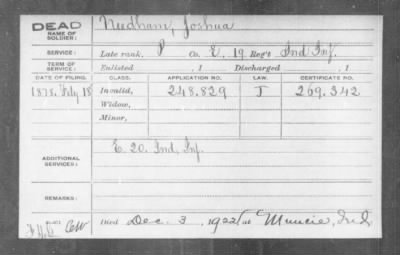 DEAD Needham, Joshua
NAME OF SOLDIER:
SERVICE: Late rank, P Co. E, 19 Reg't Ind Inf.
TERM OF SERVICE: Enlisted , 1 Discharged , 1
DATE OF FILING. CLASS. APPLICATION NO. LAW. CERTIFICATE NO.
1878, July 18 Invalid, 248.829 I 269.342
Widow,
Minor,
ADDITIONAL SERVICES: E. 20. Ind. Inf.
REMARKS:
Died Dec. 3, 1922, at Muncie, Ind.